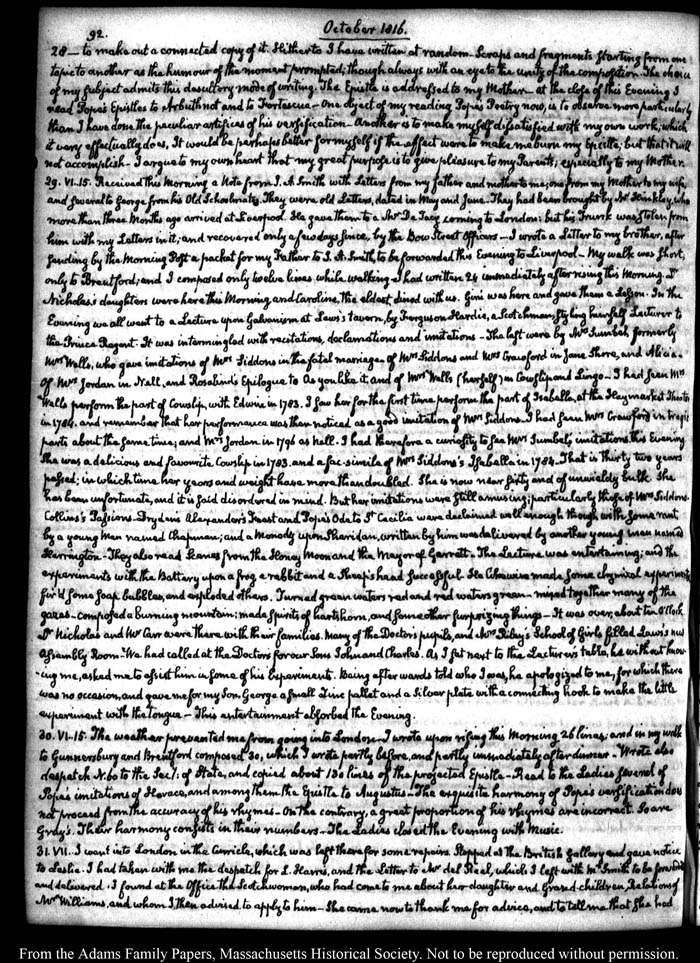 92.
October 1816.
28 — to make out a connected copy of it. Hitherto I have written at random. Scraps and fragments starting from one
topic to another as the humour of the moment prompted; though always with an eye to the unity of the composition. The choice
of my subject admits this desultory mode of writing. The Epistle is addressed to my Mother — at the close of this Evening I
read Pope's Epistles to Arbuthnot and to Fortescue — One object of my reading Pope's Poetry now, is to observe more particularly
than I have done the peculiar artifices of his versification — Another is to make myself dissatisfied with my own work, which
it very effectually does. It would be perhaps better for myself if the effect were to make me burn my Epistle, but that it will
not accomplish — I argue to my own heart that my great purpose is to give pleasure to my Parents; especially to my Mother.
29. VI.15. Received this Morning a Note from J. A. Smith with Letters from my father and mother to me; one from my Mother to my wife
and several to George from his Old Schoolmates. They were old Letters, dated in May and June. They had been brought by Mr Hinkley, who
more than three Months ago arrived at Liverpool. He gave them to a Mr De Tracy coming to London: but his Trunk was stolen from
him with my Letters in it; and recovered only a few days since, by the Bow Street Officers — I wrote a Letter to my brother, after
sending by the Morning Post a packet for my Father to J. A. Smith, to be forwarded this Evening to Liverpool — My walk was short,
only to Brentford; and I composed only twelve lines while walking. I had written 24 immediately after rising this Morning. Dr
Nicholas's daughters were here this Morning, and Caroline, the eldest dined with us. Gini was here and gave them a Lesson. In the
Evening we all went to a Lecture upon Galvanism at Laws's tavern, by Ferguson Hardie, a Scotchman, styling himself Lecturer to
the Prince Regent. It was intermingled with recitations, declamations and imitations — The last were by Mrs Sumbel, formerly
Mrs Wells, who gave imitations of Mrs Siddons in the fatal marriage, of Mrs Siddons and Mrs Crawford in Jane Shore, and Alicia —
Of Mrs Jordan in Nell, and Rosalind's Epilogue to As you like it, and of Mrs Wells (herself) in Cowslip and Lingo — I had seen Mrs
Wells perform the part of Cowslip, with Edwin in 1783. I saw her for the first time perform the part of Isabella, at the Haymarket Theatre
in 1784, and remember that her performance was then noticed as a good imitation of Mrs Siddons. I had seen Mrs Crawford in tragic
parts about the same time; and Mrs Jordan in 1796 as Nell. I had therefore a curiosity to see Mrs Sumbel's imitations this Evening
She was a delicious and favourite Cowslip in 1783, and a fac-simile of Mrs Siddons's Isabella in 1784 — That is thirty two years
passed; in which time her years and weight have more than doubled. She is now near sixty and of unwieldy bulk. She
has been unfortunate, and it is said disordered in mind. But her imitations were still amusing; particularly those of Mrs Siddons.
Collins's Passions — Dryden's Alexander's Feast and Pope's Ode to St Cecilia were declaimed well enough though with some rant
by a young Man named Chapman; and a Monody upon Sheridan, written by him was delivered by another young man named
Harrington — They also read Scenes from the Honey Moon and the Mayor of Garratt — The Lecture was entertaining; and the
experiments with the Battery upon a frog, a rabbit and a Sheep's head successful. He likewise made some chymical experiments
fir'd some soap bubbles, and exploded others. Turned green waters red and red waters green — mixed together many of the
gazes — composed a burning mountain; made spirits of hartshorn, and some other surprizing things — It was over, about ten O'Clock.
Dr Nicholas and Mr Carr were there with their families. Many of the Doctor's pupils, and Mrs Riley's School of Girls filled Laws's new
Assembly Room. We had called at the Doctors for our Sons John and Charles. As I sat next to the Lecturer's table, he without know-
-ing me, asked me to assist him in some of his Experiment. Being afterwards told who I was, he apologized to me, for which there
was no occasion, and gave me for my Son, George a small Zinc pallet and a Silver plate with a connecting hook to make the little
experiment with the Tongue — This entertainment absorbed the Evening.
30. VI.15. The weather prevented me from going into London. I wrote upon rising this Morning 26 lines; and in my walk
to Gunnersbury and Brentford composed 30, which I wrote partly before, and partly immediately after dinner — Wrote also
despatch N. 60 to the Sec'y: of State, and copied about 130 lines of the projected Epistle — Read to the Ladies several of
Pope's imitations of Horace, and among them the Epistle to Augustus — The exquisite harmony of Pope's versification does
not proceed from the accuracy of his rhymes — On the contrary, a great proportion of his rhymes are incorrect. So are
Gray's. Their harmony consists in their numbers — The Ladies closed the Evening with Music.
31. VII. I went into London in the Curricle, which was left there for some repairs. Stopped at the British Gallery and gave notice
to Leslie. I had taken with me the despatch for L. Harris, and the Letter to Mr del Real, which I left with Mr Smith to be forwarded
and delivered. I found at the Office the Scotchwoman, who had come to me about her daughter and Grand children, Relations of
Mr Williams, and whom I then advised to apply to him — She came now to thank me for advice, and to tell me that she had
From the Adams Family Papers, Massachusetts Historical Society. Not to be reproduced without permission.